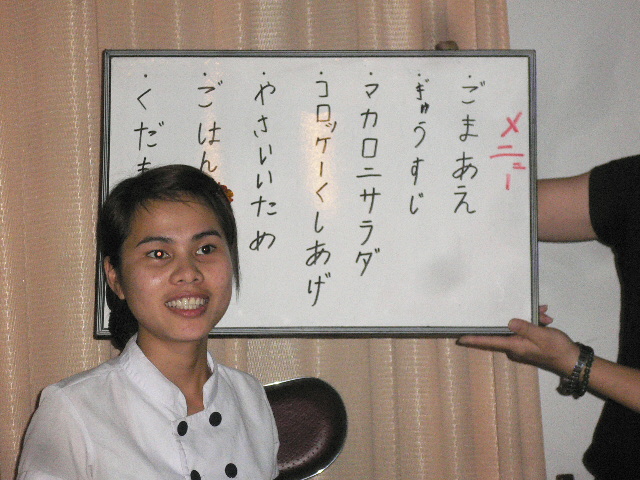 メニュー
・ごまあえ
・ぎゅうすじ
・マカロニサラダ
・コロッケーくしあげ
・やさいいため
・ごはん
・くだも